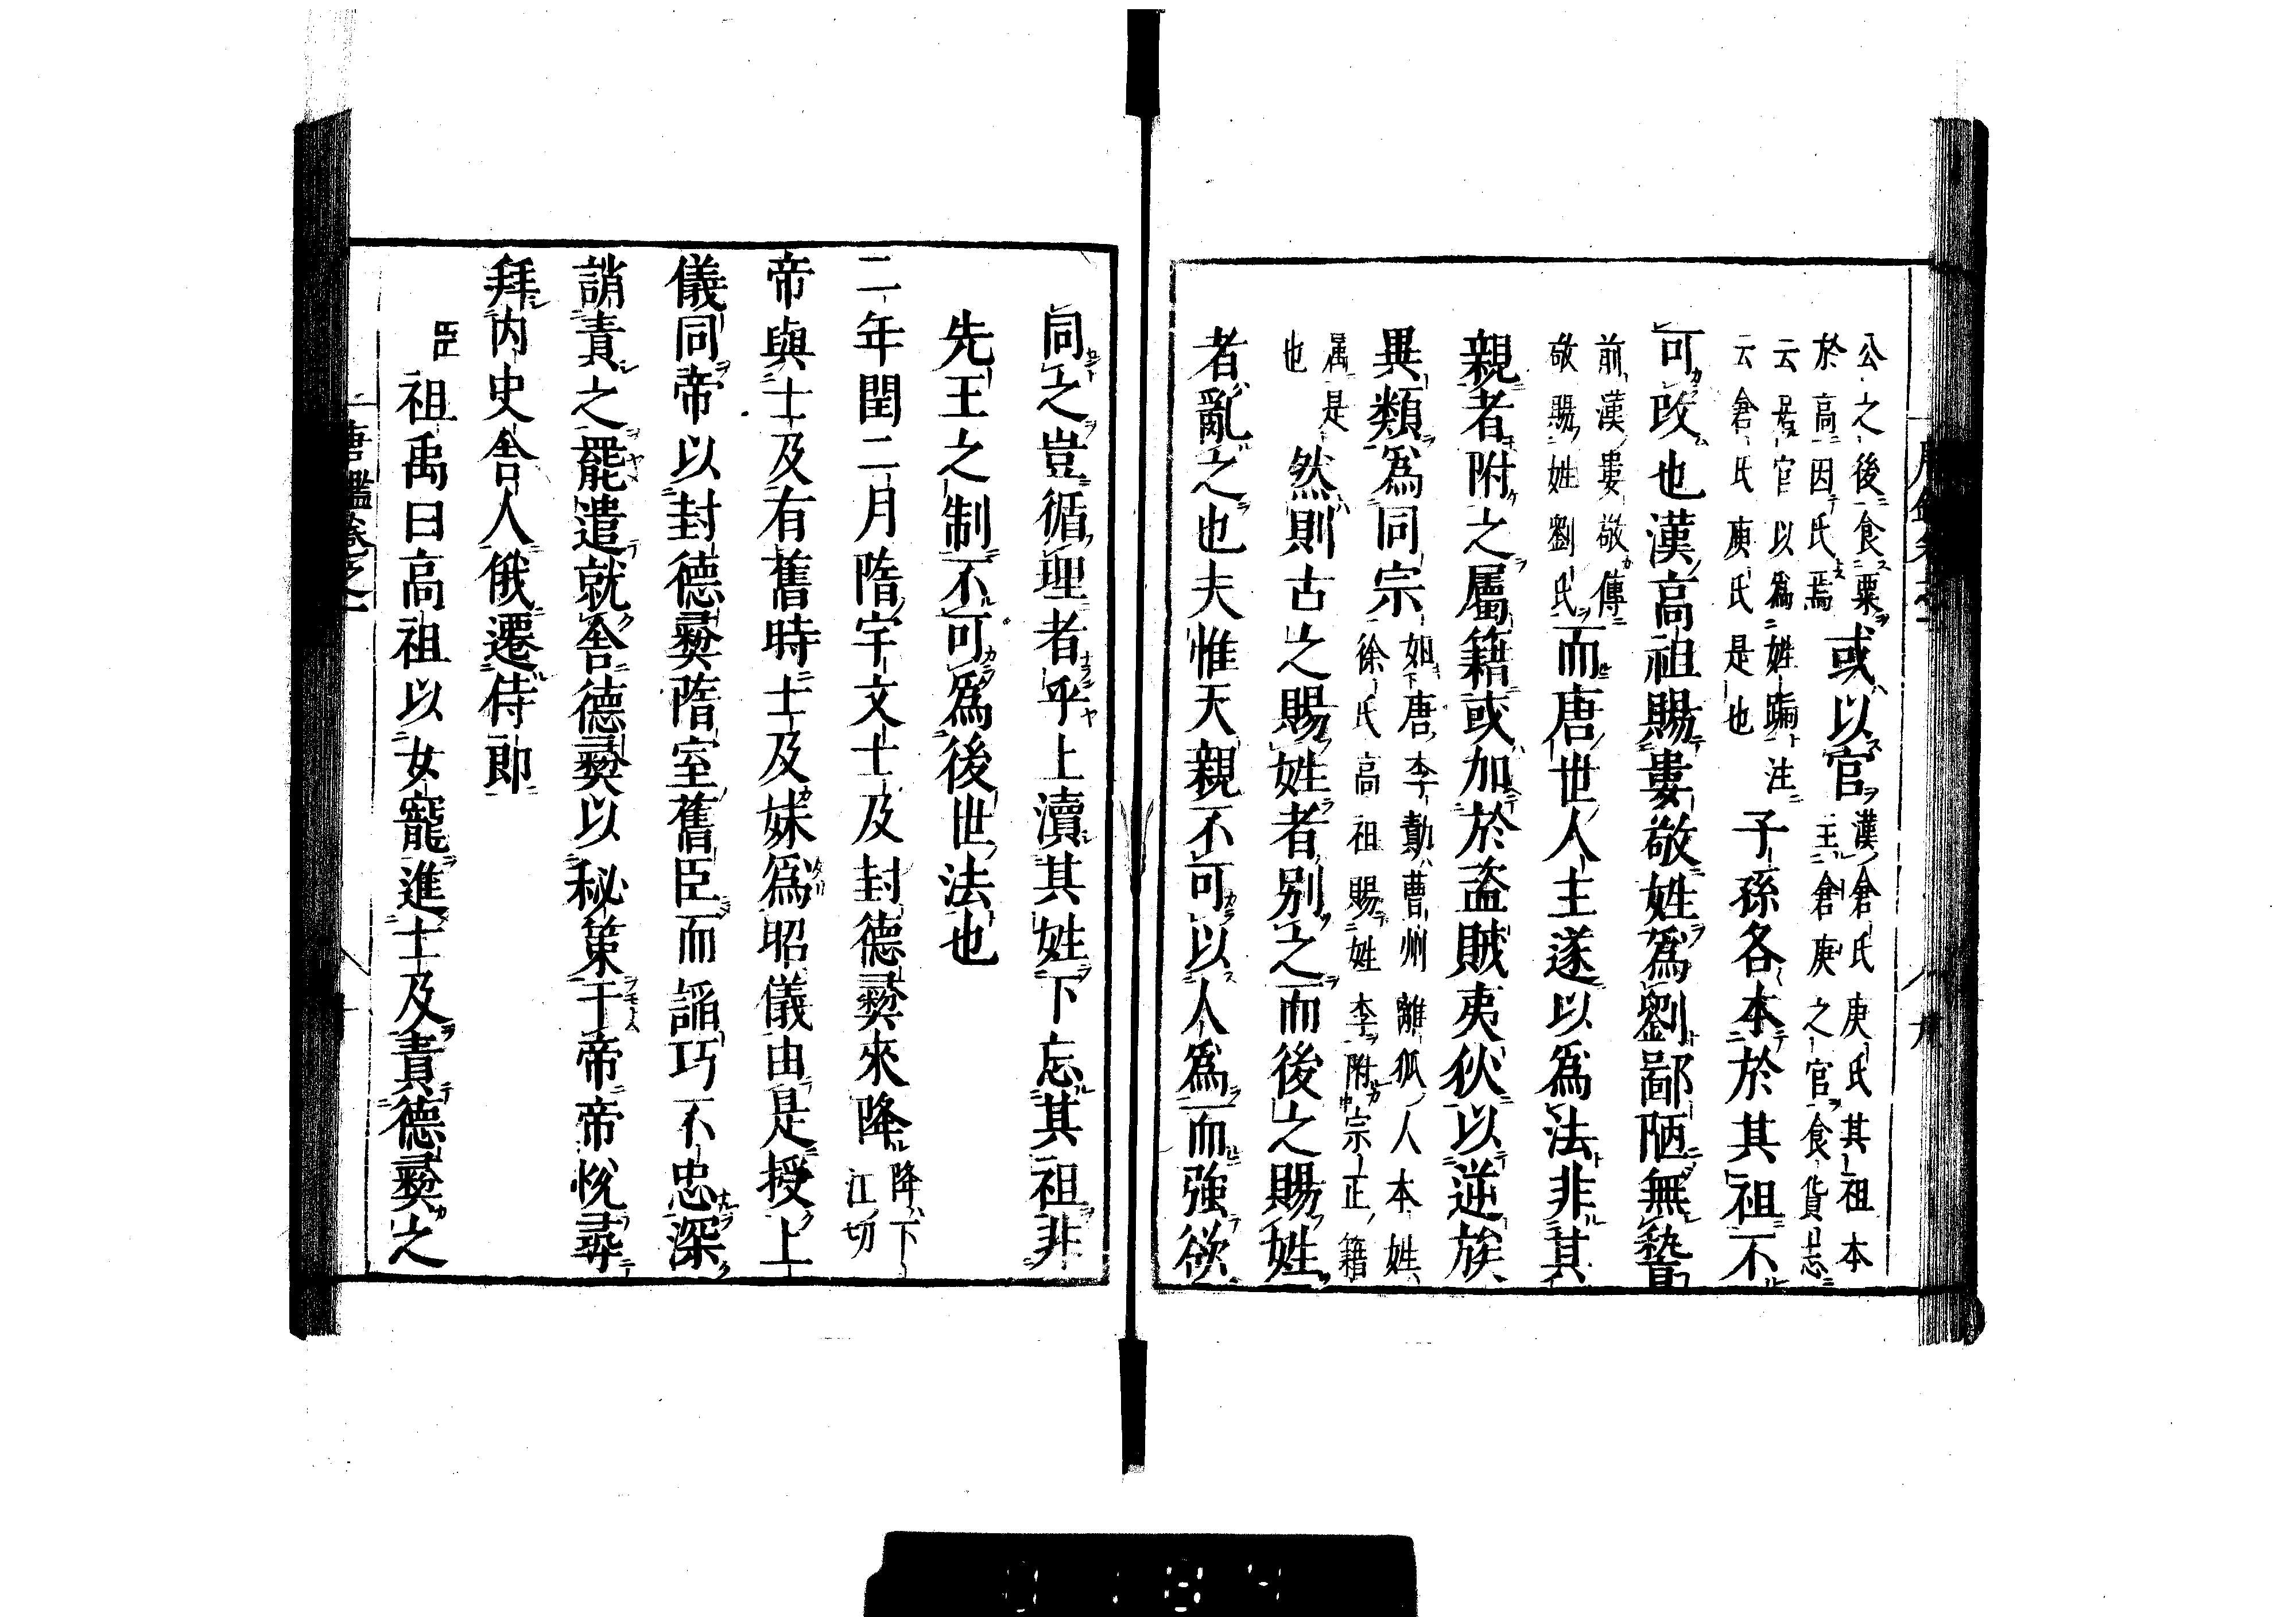 公之後食粟
於高因氏焉
或以官
漢倉氏庾氏其祖本
主倉庾之官食貨志
云居官以為姓號注
云倉氏庾氏是也
子孫各本於其祖不
可改也漢高祖賜婁敬姓為劉鄙陋無稽
前漢婁敬傳
敬賜姓劉氏
而唐世人主遂以為法非其
親者附之屬籍或加於盗賊夷狄以逆族
異類為同宗
如唐李勣曹州離狐人本姓
徐氏高祖賜姓李附宗正籍
属是
也
然則古之賜姓者別之而後之賜姓
者亂之也夫惟天親不可以人為而強欲
同之豈循理者乎上瀆其姓下忘其祖非
先王之制不可為後世法也
二年閏二月隋宇文士及封德彝來降
降下
江切
帝與士及有舊時士及妹為昭儀由是授上
儀同帝以封德彝隋室舊臣而謟巧不忠深
誚責之罷遣就舎德彝以秘策干帝帝悅尋
拜内史舎人俄遷侍郎
臣祖禹曰高祖以女寵進士及責德彝之
唐鑑卷之一